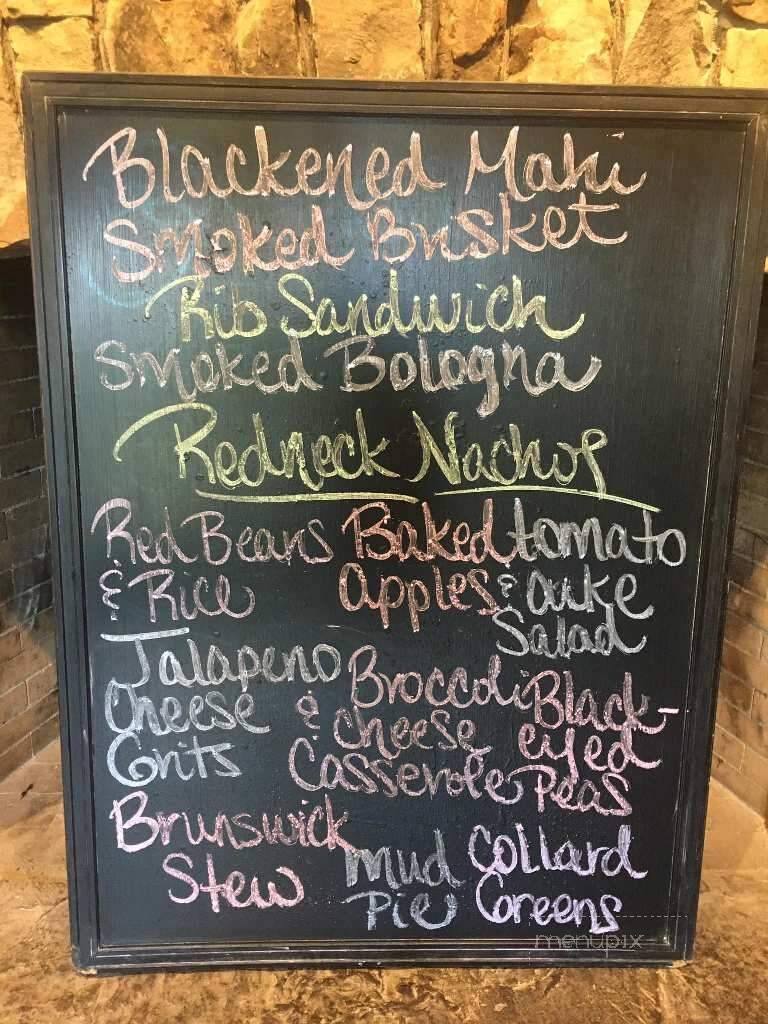 Blackened Mahi
Smoked Brisket
Rib Sandwich
Smoked Bologna
Redneck Nachos
Red Beans
& Rice
Baked
Apples
tomato
& cuke
Salad
Jalapeno
Cheese
Grits
Broccoli
& cheese
Casserole
Black-
eyed
Peas
Brunswick
Stew
Mud
Pie
Collard
Greens
menupix